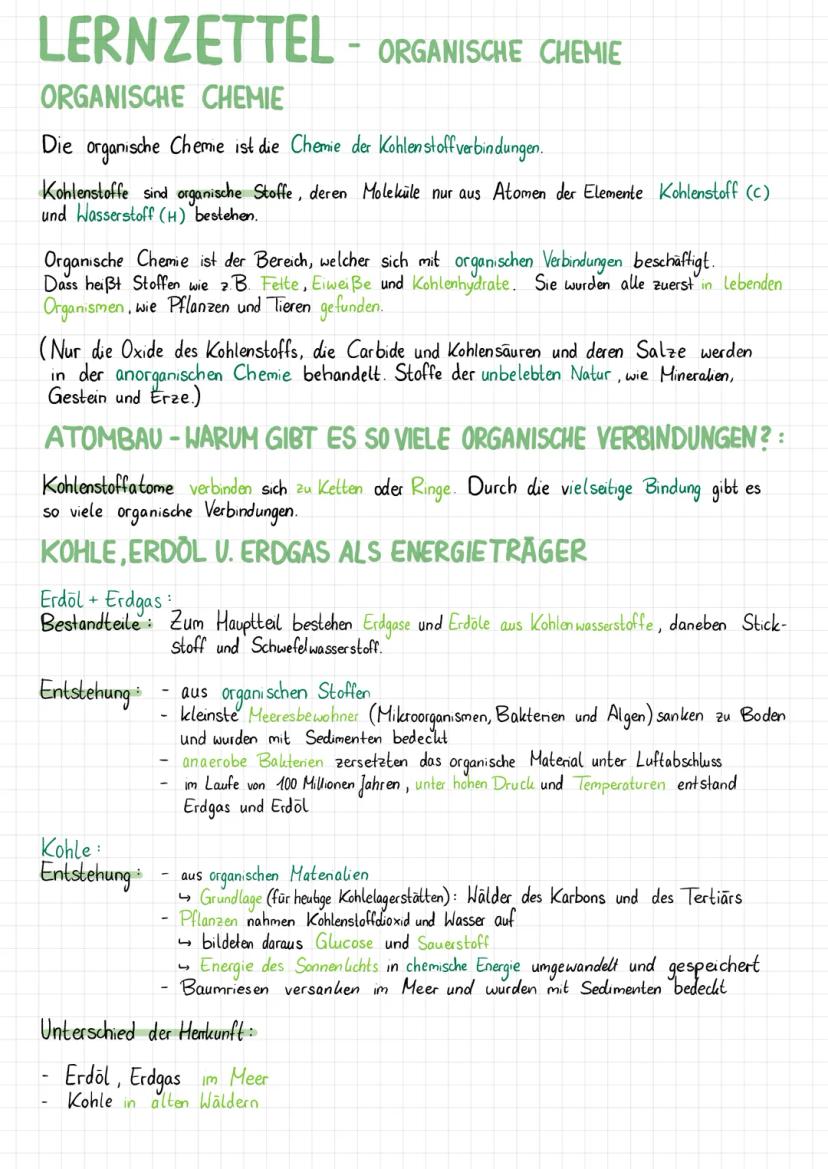 LERNZETTEL - ORGANISCHE CHEMIE
ORGANISCHE CHEMIE
Die organische Chemie ist die Chemie der Kohlenstoffverbindungen.
Kohlenstoffe sind organische Stoffe, deren Moleküle nur aus Atomen der Elemente Kohlenstoff (C)
und Wasserstoff (H) bestehen.
Organische Chemie ist der Bereich, welcher sich mit organischen Verbindungen beschäftigt.
Dass heißt Stoffen wie z.B. Fette, Eiweiße und Kohlenhydrate. Sie wurden alle zuerst in lebenden
Organismen, wie Pflanzen und Tieren gefunden.
(Nur die Oxide des Kohlenstoffs, die Carbide und Kohlensäuren und deren Salze werden
in der anorganischen Chemie behandelt. Stoffe der unbelebten Natur, wie Mineralien,
Gestein und Erze.)
ATOMBAU - WARUM GIBT ES SO VIELE ORGANISCHE VERBINDUNGEN?:
Kohlenstoffatome verbinden sich zu Ketten oder Ringe. Durch die vielseitige Bindung gibt es
so viele organische Verbindungen.
KOHLE, ERDÖL U. ERDGAS ALS ENERGIETRÄGER
Erdöl + Erdgas:
Bestandteile: Zum Hauptteil bestehen Erdgase und Erdöle aus Kohlenwasserstoffe, daneben Stick-
stoff und Schwefelwasserstoff.
Entstehung: - aus organischen Stoffen
- kleinste Meeresbewohner (Mikroorganismen, Bakterien und Algen) sanken zu Boden
und wurden mit Sedimenten bedeckt
- anaerobe Bakterien zersetzten das organische Material unter Luftabschluss
- im Laufe von 100 Millionen Jahren, unter hohen Druck und Temperaturen entstand
Erdgas und Erdöl
Kohle:
Entstehung: - aus organischen Materialien
↳ Grundlage (für heutige Kohlelagerstätten): Wälder des Karbons und des Tertiärs
- Pflanzen nahmen Kohlenstoffdioxid und Wasser auf
↳ bildeten daraus Glucose und Sauerstoff
↳ Energie des Sonnenlichts in chemische Energie umgewandelt und gespeichert
- Baumriesen versanken im Meer und wurden mit Sedimenten bedeckt
Unterschied der Herkunft:
- Erdöl, Erdgas im Meer
- Kohle in alten Wäldern